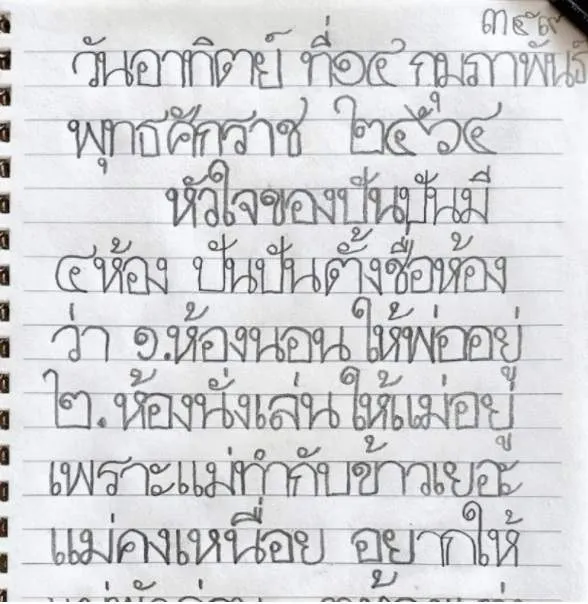 วันอาทิตย์ ที่๑๔ กุมภาพันธ์
พุทธศักราช ๒๕๖๔
หัวใจของปันปันมี
๔ห้อง ปันปันตั้งชื่อห้อง
ว่า ๑.ห้องนอน ให้พ่ออยู่
๒.ห้องนั่งเล่น ให้แม่อยู่
เพราะแม่ทำกับข้าวเยอะ
แม่คงเหนื่อย อยากให้